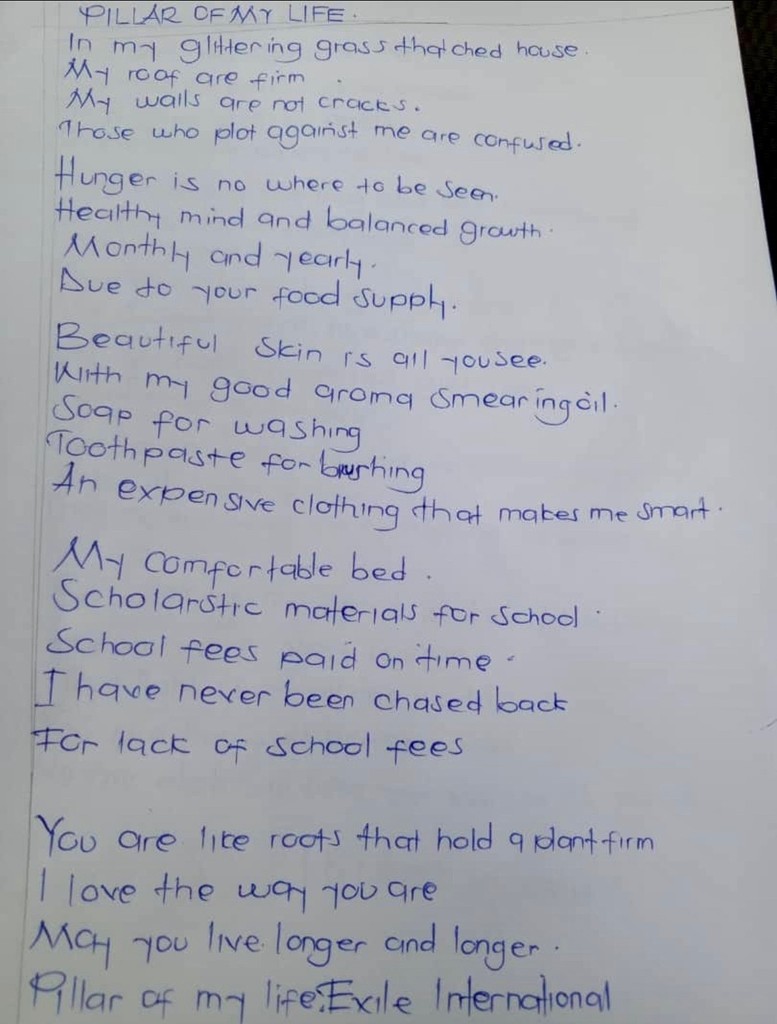 PILLAR OF MY LIFE.
In my glittering grass thatched house.
My roof are firm.
My walls are not cracks.
Those who plot against me are confused.
Hunger is no where to be seen.
Healthy mind and balanced growth.
Monthly and yearly.
Due to your food supply.
Beautiful skin is all you see.
With my good aroma smearing oil.
Soap for washing
Toothpaste for brushing
An expensive clothing that makes me smart.
My comfortable bed.
Scholarstic materials for school.
School fees paid on time.
I have never been chased back
For lack of school fees
You are like roots that hold a plant firm
I love the way you are
May you live longer and longer.
Pillar of my life; Exile International